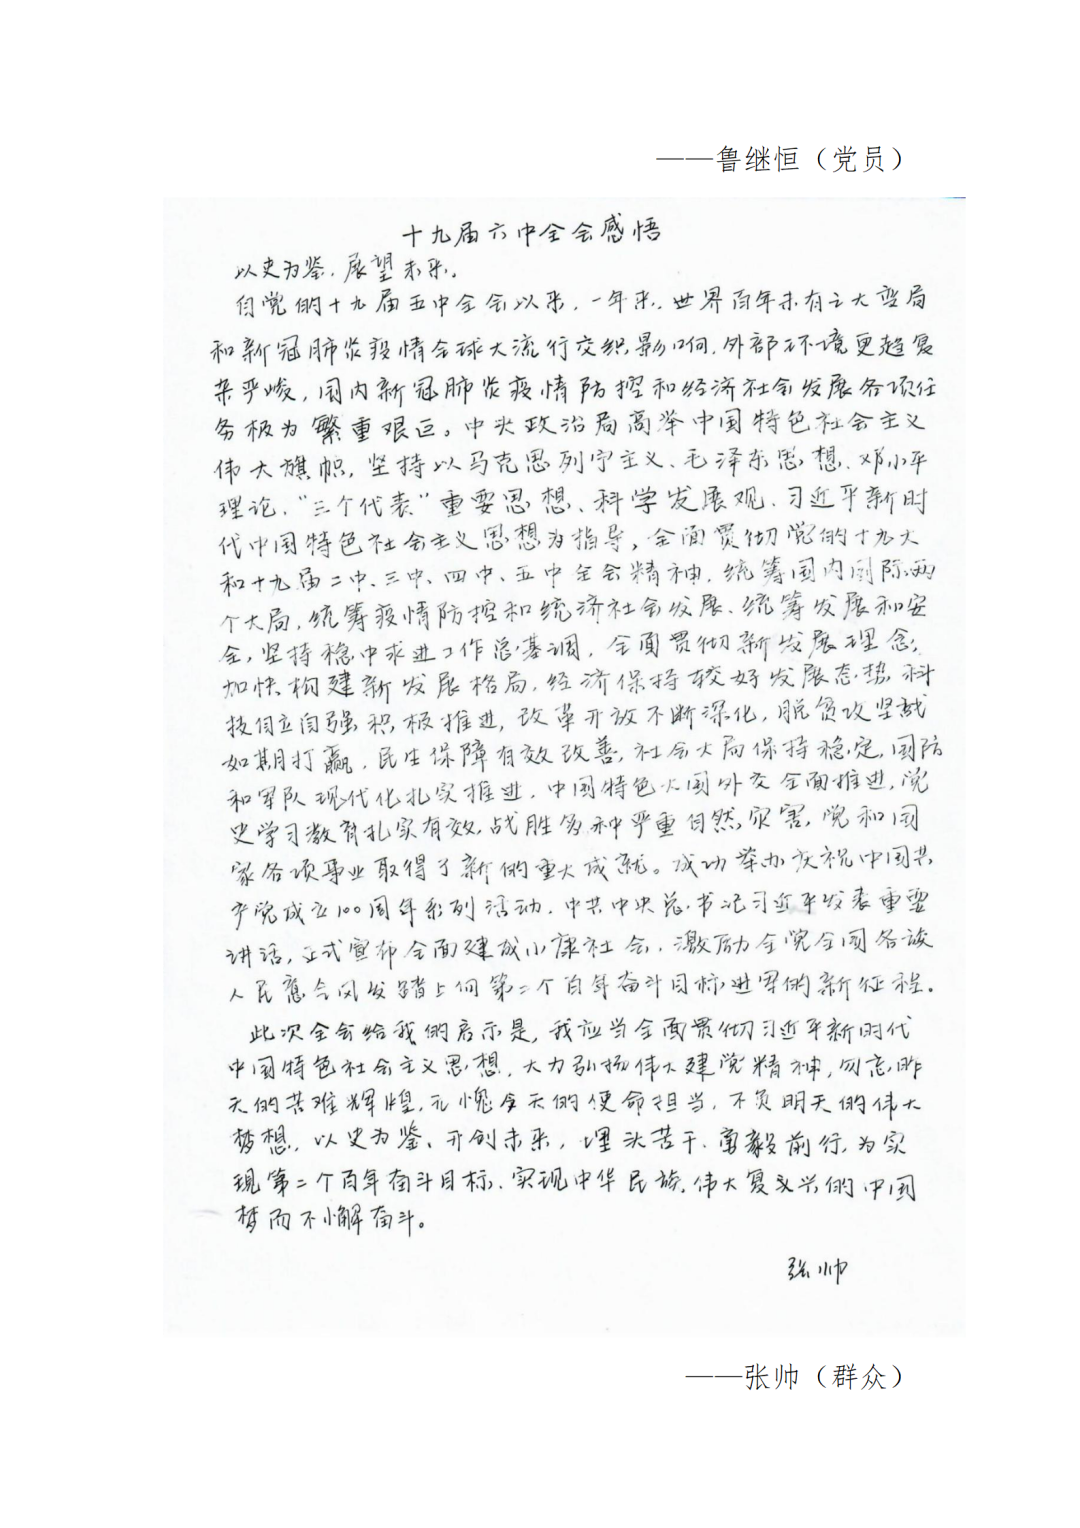 ——鲁继恒（党员）
十九届六中全会感悟
以史为鉴、展望未来。
自党的十九届五中全会以来，一年来，世界百年未有之大变局
和新冠肺炎疫情全球大流行交织影响，外部环境更趋复
杂严峻，国内新冠肺炎疫情防控和经济社会发展各项任
务极为繁重艰巨。中央政治局高举中国特色社会主义
伟大旗帜，坚持以马克思列宁主义、毛泽东思想、邓小平
理论、“三个代表”重要思想、科学发展观、习近平新时
代中国特色社会主义思想为指导，全面贯彻党的十九大
和十九届二中、三中、四中、五中全会精神，统筹国内国际两
个大局，统筹疫情防控和统济社会发展、统筹发展和安
全，坚持稳中求进工作总基调，全面贯彻新发展理念，
加快构建新发展格局，经济保持较好发展态势，科
技自立自强积极推进，改革开放不断深化，脱贫攻坚战
如期打赢，民生保障有效改善，社会大局保持稳定，国防
和军队现代化扎实推进，中国特色大国外交全面推进，党
史学习教育扎实有效，战胜多种严重自然灾害，党和国
家各项事业取得了新的重大成就。成功举办庆祝中国共
产党成立100周年系列活动，中共中央总书记习近平发表重要
讲话，正式宣布全面建成小康社会，激励全党全国各族
人民意气风发踏上向第二个百年奋斗目标进军的新征程。
此次全会给我的启示是，我应当全面贯彻习近平新时代
中国特色社会主义思想，大力弘扬伟大建党精神，勿忘昨
天的苦难辉煌，无愧今天的使命担当，不负明天的伟大
梦想，以史为鉴、开创未来，埋头苦干、勇毅前行，为实
现第二个百年奋斗目标、实现中华民族伟大复兴的中国
梦而不懈奋斗。
张帅
——张帅（群众）